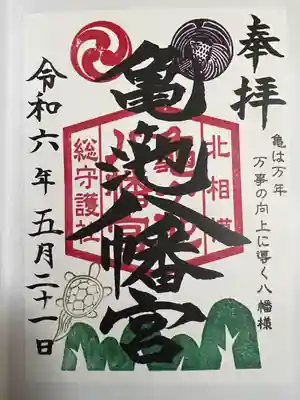 奉拝
亀は万年
万事の向上に導く八幡様
北相模
亀池八幡宮
総守護社
令和六年五月二十一日